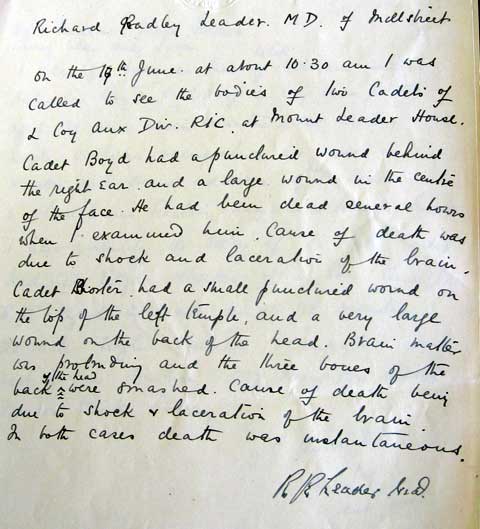 Richard Radley Leader. M.D. of Millstreet
On the 16th June. at about 10.30 am I was
called to see the bodies of two Cadets of
L Coy Aux Div. RIC. at Mount Leader House.
Cadet Boyd had a punctured wound behind
the right Ear. and a large wound in the centre
of the face. He had been dead several hours
when I examined him. Cause of death was
due to shock and laceration of the brain.
Cadet Shorter had a small punctured wound on
the top of the left temple, and a very large
wound on the back of the head. Brain matter
was protruding and the three bones of the
back of the head were smashed. Cause of death being
due to shock & laceration of the brain.
In both cases death was instantaneous.
R R Leader M.D.